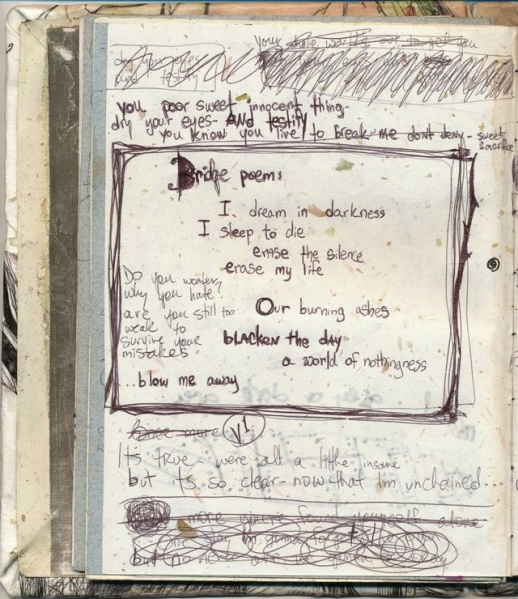 you poor sweet innocent thing-
dry your eyes- AND testify
you know you live to break me dont deny - sweet
sacrifice
Bridge poem:
I dream in darkness
I sleep to die
erase the silence
erase my life
Do you wonder
why you hate.
are you still too
weak to
survive your
mistakes
Our burning ashes
blacken the day
a world of nothingness
...blow me away
V1
Its true were all a little insane
but its so clear- now that Im unchained...